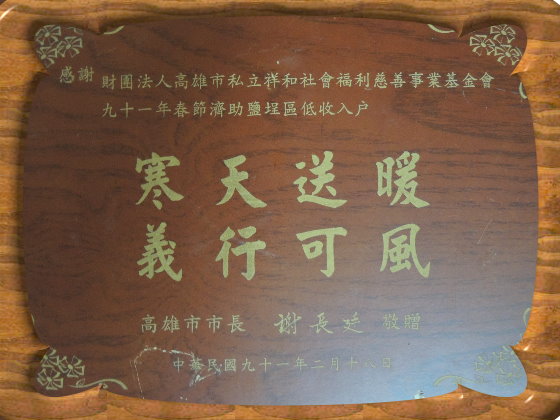 感謝 財團法人高雄市私立祥和社會福利慈善事業基金會
九十一年春節濟助鹽埕區低收入戶
寒天送暖
義行可風
高雄市市長 謝長廷 敬贈
中華民國九十一年二月十八日